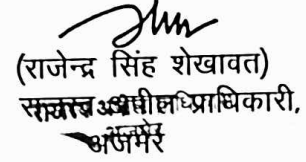 (राजेन्द्र सिंह शेखावत)
अपील प्राधिकारी,
अजमेर